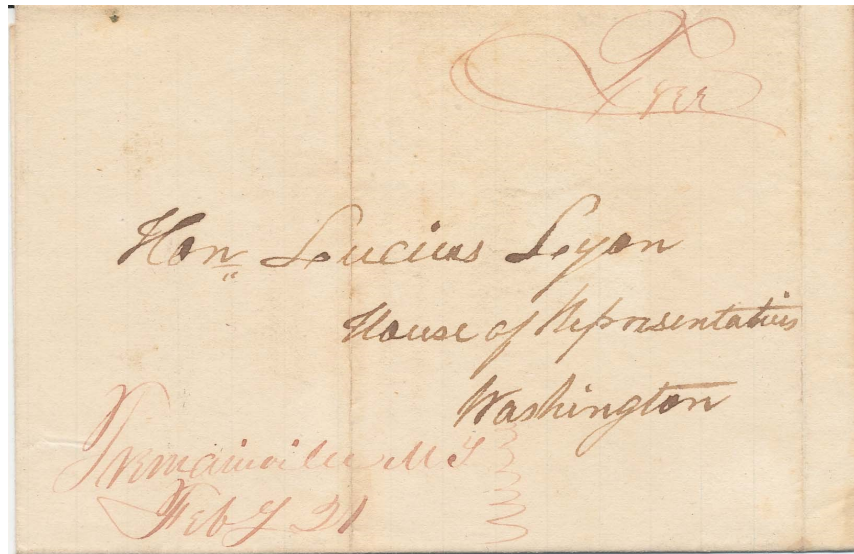 Free
Hon. Lucius Lyon
House of Representatives
Washington
Tremainville M T
Feby 21